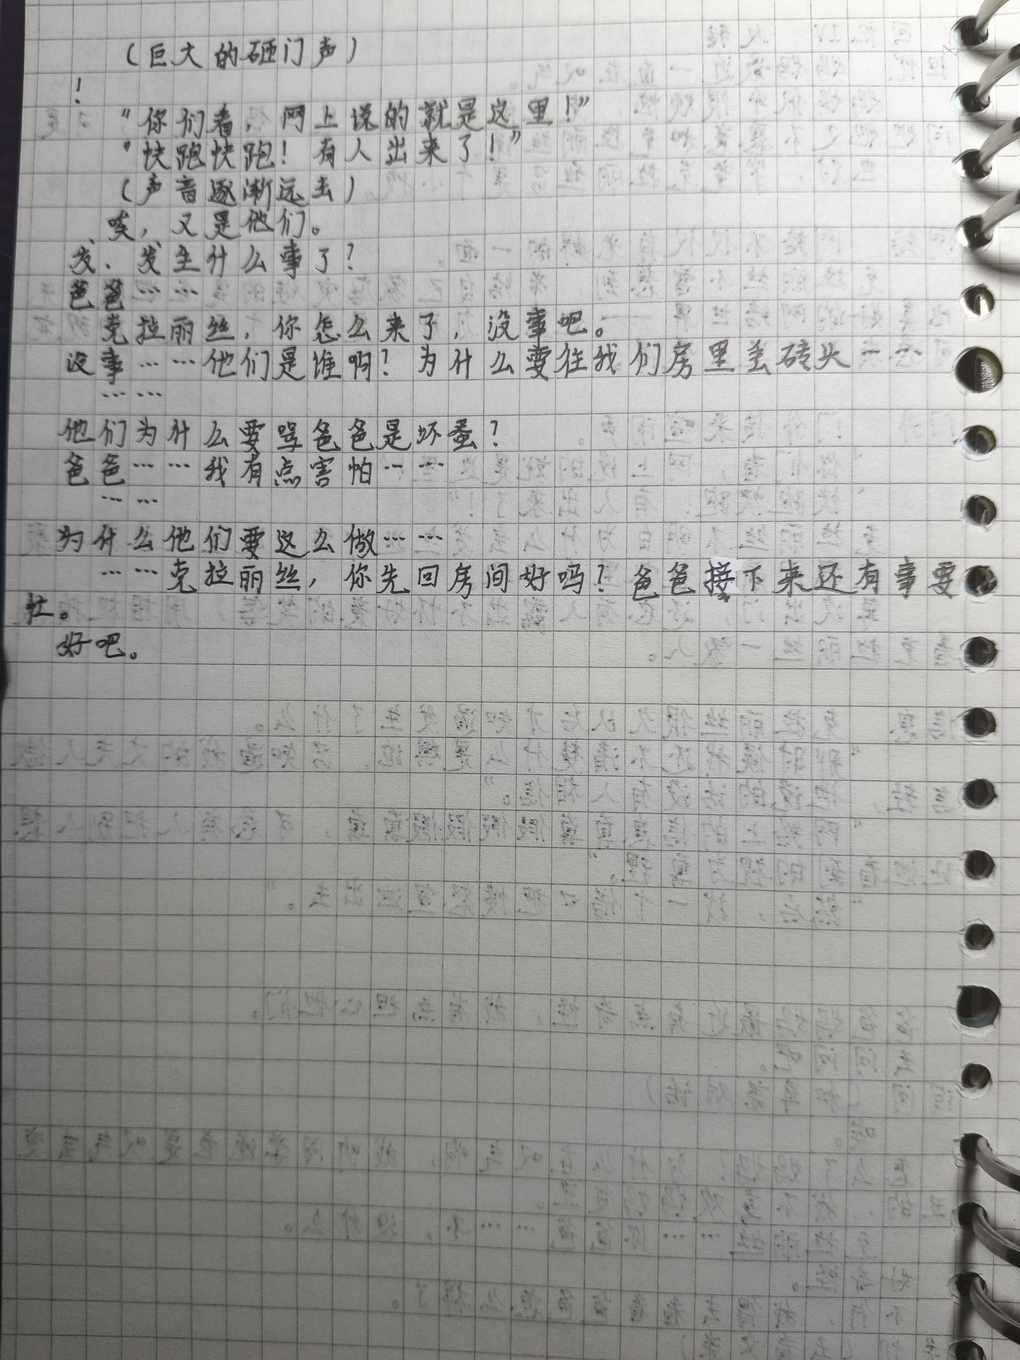 （巨大的砸门声）
！
“你们看，网上说的就是这里！”
“快跑快跑！有人出来了！”
（声音逐渐远去）
唉，又是他们。
发、发生什么事了？
爸爸……
克拉丽丝，你怎么来了，没事吧。
没事……他们是谁啊？为什么要往我们房里丢砖头……
……
他们为什么要骂爸爸是坏蛋？
爸爸……我有点害怕……
……
为什么他们要这么做……
……克拉丽丝，你先回房间好吗？爸爸接下来还有事要
忙。
好吧。